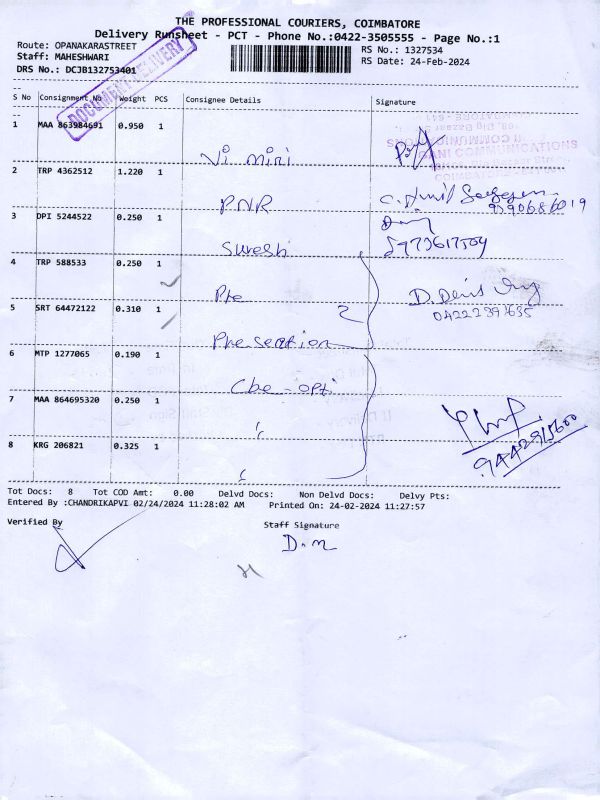 THE PROFESSIONAL COURIERS, COIMBATORE
Delivery Runsheet - PCT - Phone No.:0422-3505555 - Page No.:1
Route: OPANAKARASTREET
RS No.: 1327534
Staff: MAHESHWARI
RS Date: 24-Feb-2024
DRS No.: DCJB132753401
DOCUMENT DELIVERY
S No Consignment No Weight PCS Consignee Details Signature
1 MAA 863984691 0.950 1
Vi mini
COMMUNICATIONS
2 TRP 4362512 1.220 1
PNR
3 DPI 5244522 0.250 1
Suresh
4 TRP 588533 0.250 1
Pre
5 SRT 64472122 0.310 1
Pre section
6 MTP 1277065 0.190 1
Cbe - opti
7 MAA 864695320 0.250 1
8 KRG 206821 0.325 1
Tot Docs: 8 Tot COD Amt: 0.00 Delvd Docs: Non Delvd Docs: Delvy Pts:
Entered By :CHANDRIKAPVI 02/24/2024 11:28:02 AM Printed On: 24-02-2024 11:27:57
Verified By
Staff Signature
D. m